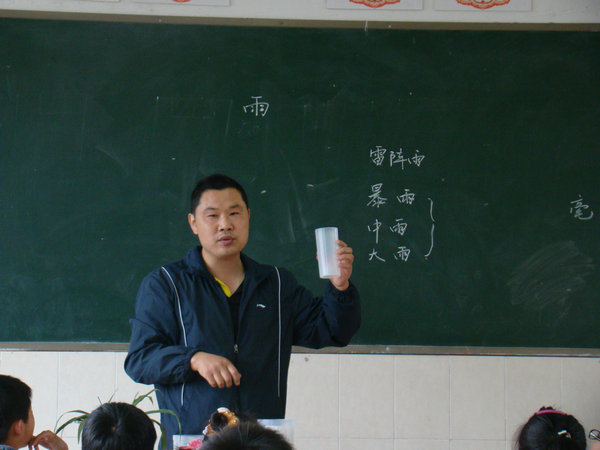 雨
雷阵雨
暴雨
中雨
大雨
毫